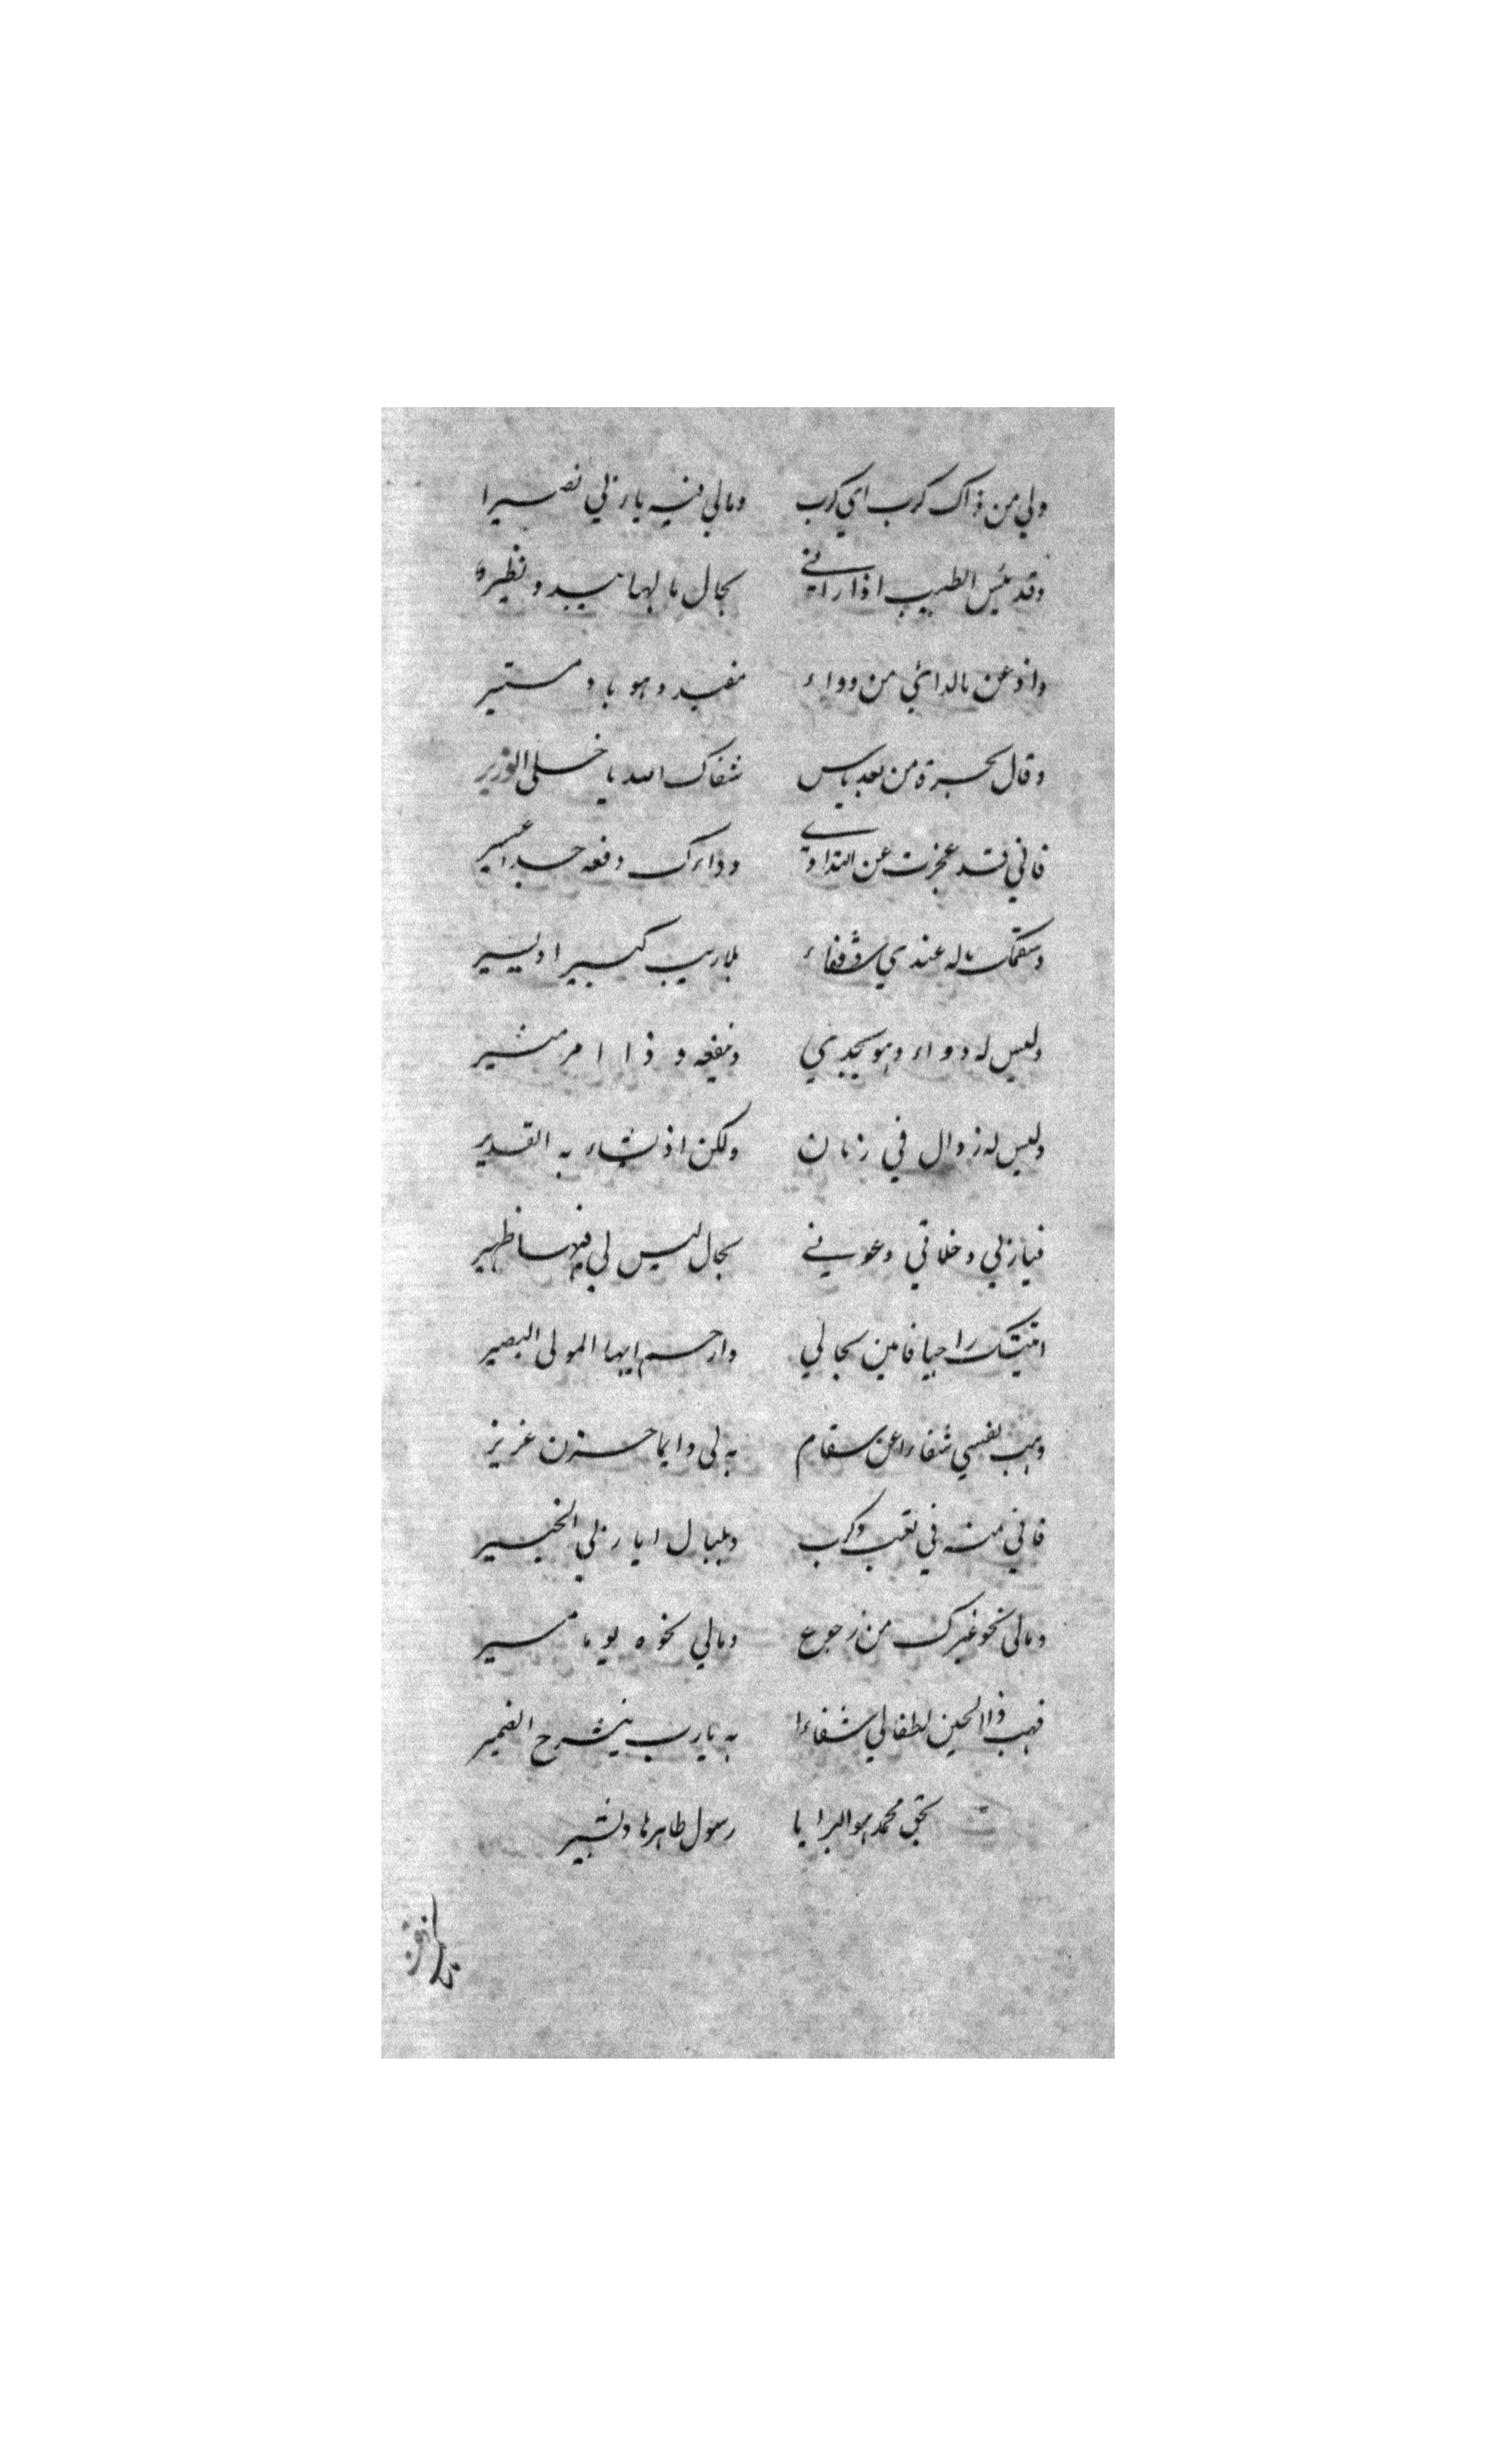 ولي من ذاك كرب اي كرب ومالي فيه يا ربي نصيرا
وقد يئس الطبيب اذا راني بحال مالها يبدو نظيره
واذ عن مالدائي من دواء مفيد وهو باد مستير
وقال بحسرة من بعد ياس شفاك الله يا خلي الوزير
فاني قد عجزت عن التداوي وداءك دفعه جدا عسير
وسقمك ماله عندي شفاء بلا ريب كبير او يسير
وليس له دواء وهو يجدي وينفعه و ذا امر
وليس له زوال في زمان ولكن اذ يشاء به القدير
فيا ربي وخلاقي وعوني بحال ليس لي فيها ظهير
اتيتك راجيا فامنن بحالي وارحم ايها المولى البصير
وهب لنفسي شفاء عن سقام به لي دايما حزن غزير
فاني منه في تعب وكرب وبلبال ايا ربي الخبير
ومالي نحو غيرك من رجوع ومالي نحوه يوما مسير
فهب ذا الحين لطفا لي شفاءا به يا رب ينشرح الضمير
بحق محمد هو البرايا رسول طاهر هاد بشير